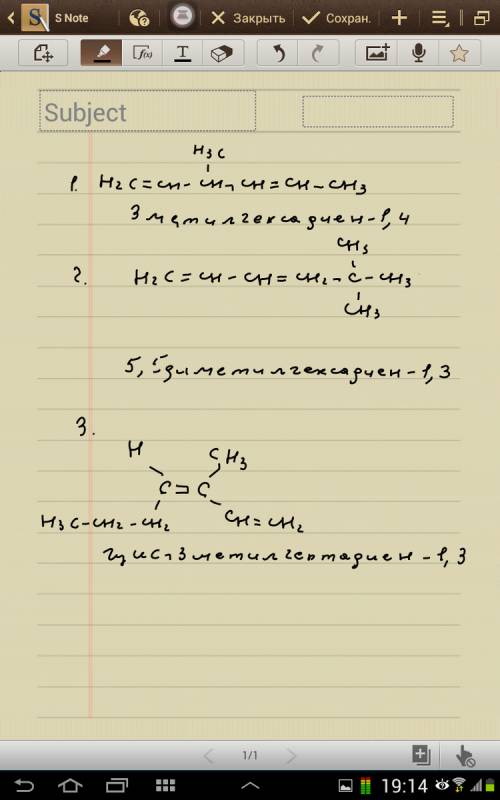 S Note
Закрыть
Сохран.
f(x)
T
Subject
H3C
1. H2C=CH-CH-CH=CH-CH3
3 метилгексадиен-1,4
CH3
2. H2C=CH-CH=CH2-C-CH3
CH3
5,5диметилгексадиен-1,3
3.
H
CH3
C=C
H3C-CH2-CH2
CH=CH2
цис-3метилгептадиен-1,3
1/1
19:14